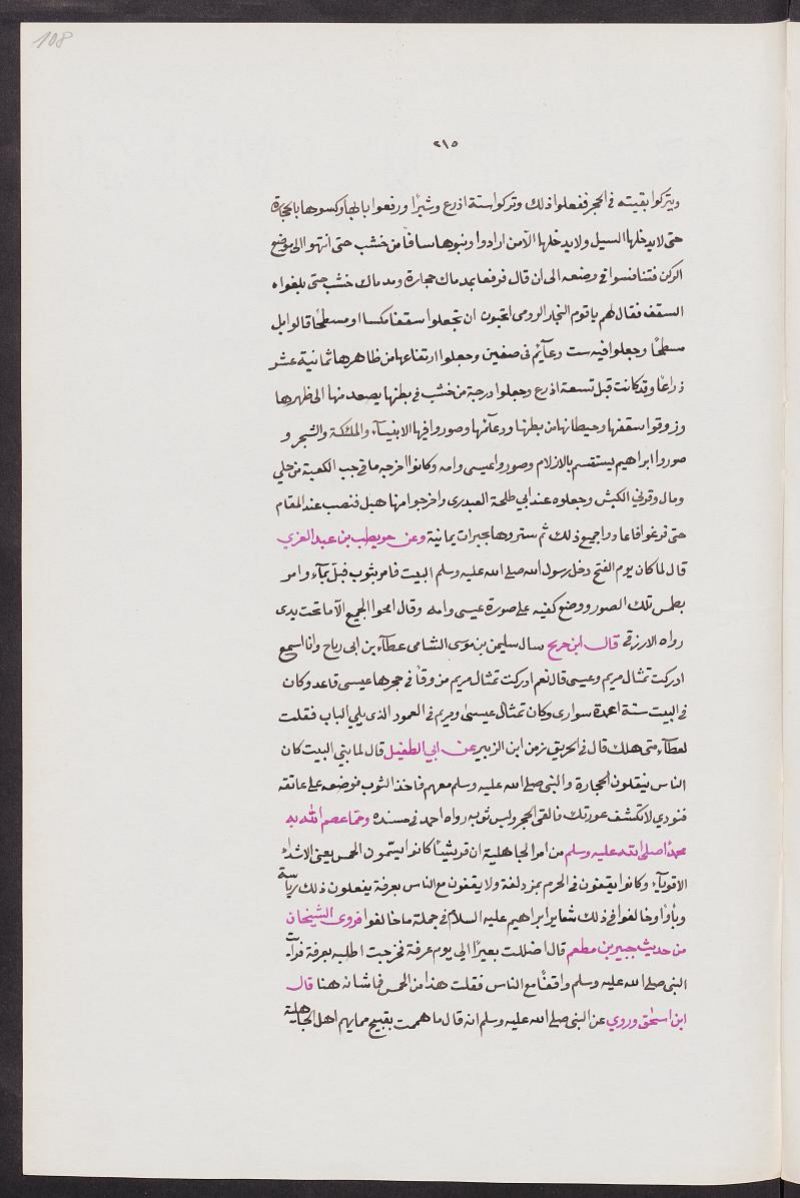 108
٢١٥
ويتركوا بقيته في الحجر ففعلوا ذلك وتركوا ستة اذرع وشبرًا ورفعوا بابها وكسوها بالحجارة
حتى لا يدخلها السيل ولا يدخلها الا من ارادوا وبنوها سافًا من خشب حتى انتهوا الى موضع
الركن فتنافسوا في وضعه الى ان قال فرفعا بمدماك حجارة ومدماك خشب حتى بلغوا ه
السقف فقال لهم ياقوم النجار الرومى اتحبون ان تجعلوا سقفنا مكسا او مسطحًا قالوا بل
مسطحًا وجعلوا فيه ست دعآئم فى صفين وجعلوا ارتفاعها من ظاهرها ثمانية عشر
ذراعًا وقد كانت قبل تسعة اذرع وجعلوا درجة من خشب في بطنها يصعد منها الى ظهرها
وزوقوا سقفها وحيطانها من بطنها ودعآئمها وصوروا فيها الانبيآء والملئكة والشجر و
صوروا ابراهيم يستقسم بالازلام وصوروا عيسى وامه وكانوا اخرجه ما في جب الكعبة من حلي
ومال وقرني الكبش وجعلوه عند ابي طلحة العبدرى واخرجوا منها هبل فنصب عند المقام
حتى فرغوا فاعادوا جميع ذلك ثم ستروها بحبرات يمانية وعن حويطب بن عبد العزي
قال لما كان يوم الفتح دخل رسول الله صلى الله عليه وسلم البيت فامر بثوب فبل بمآء وامر
بطمس تلك الصور ووضع كفيه على صورة عيسى وامه وقال امحوا الجميع الا ما تحت يدى
رواه الازرقي قال ابن جريج سال سليمن بن موسى الشامى عطآء بن ابى رباح وانا اسمع
ادركت تمثال مريم وعيسى قال نعم ادركت تمثال مريم مزوقًا في حجرها عيسى قاعد وكان
في البيت ستة اعمدة سوارى وكان تمثال عيسى ومريم في العمود الذى يلي الباب فقلت
لعطآء متى هلك قال في الحريق زمن ابن الزبير عن ابي الطفيل قال لما بني البيت كان
الناس ينقلون الحجارة والنبى صلى الله عليه وسلم معهم فاخذ الثوب فوضعه على عاتقه
فنودي لا تكشف عورتك فالقى الحجر ولبس ثوبه رواه احمد في مسنده ومما عصم الله به
محمدًا صلى الله عليه وسلم من امر الجاهلية ان قريشًا كانوا يسمون الحمس يعنى الاشداء
الاقويآء وكانوا يقفون في الحرم بمزدلفة ولا يقفون مع الناس بعرفة يفعلون ذلك رياسة
وبأوًا وخالفوا في ذلك شعاير ابراهيم عليه السلام في جملة ما خالفوا فروى الشيخان
من حديث جبير بن مطعم قال اضللت بعيرًا الى يوم عرفة فخرجت اطلبه بعرفة فرأيت
النبى صلى الله عليه وسلم واقفًا مع الناس فقلت هذا من الحمس فما شانه هنا قال
ابن اسحق وروي عن النبى صلى الله عليه وسلم انه قال ما هممت بقبيح مما يهم اهل الجاهلية